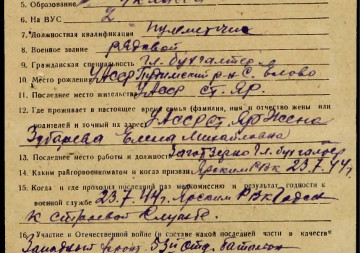 5. Образование
6. На ВУС 2
7. Должностная квалификация пулеметчик
8. Военное звание рядовой
9. Гражданская специальность Гл. бухгалтер
10. Место рождения УАССР р-н с. Елово
11. Последнее место жительства УАССР ст. Яр.
12. Где проживает в настоящее время семья (фамилия, имя и отчество жены или
родителей и точный их адрес) УАССР ст. Яр Жена
Зубарева Елена Михайловна
13. Последнее место работы и должность Заготзерно Гл. бухгалтер
14. Каким райгорвоенкоматом и когда призван Ярским РВК 23.7.44 г.
15. Когда и где проходил последний раз медкомиссию и результат годности к
военной службе 23.7.44 г. Ярским РВК годен
к строевой службе.
16. Участие в Отечественной войне (в составе какой последней части в качестве
Западный фронт. 53й отд. батальон